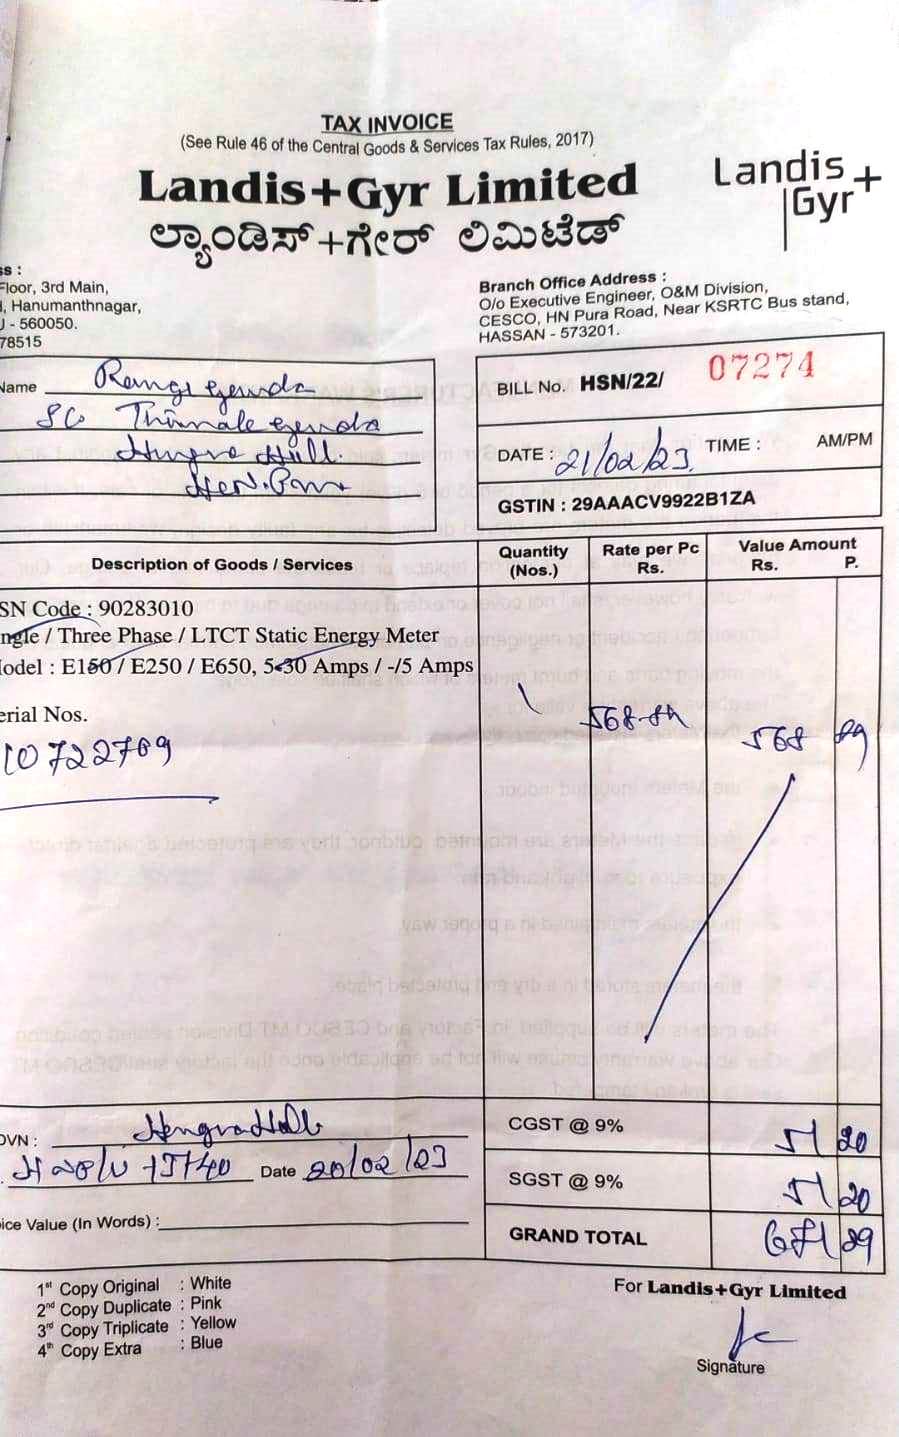 TAX INVOICE
(See Rule 46 of the Central Goods & Services Tax Rules, 2017)
Landis+Gyr Limited
ಲ್ಯಾಂಡಿಸ್+ಗೇರ್ ಲಿಮಿಟೆಡ್
Landis+
Gyr
ss :
Floor, 3rd Main,
, Hanumanthnagar,
U - 560050.
78515
Branch Office Address :
O/o Executive Engineer, O&M Division,
CESCO, HN Pura Road, Near KSRTC Bus stand,
HASSAN - 573201.
Name
BILL No. HSN/22/ 07274
DATE : 21/02/23. TIME : AM/PM
GSTIN : 29AAACV9922B1ZA
Description of Goods / Services
Quantity (Nos.)
Rate per Pc Rs.
Value Amount
Rs. P.
SN Code : 90283010
ngle / Three Phase / LTCT Static Energy Meter
Model : E150 / E250 / E650, 5-30 Amps / -/5 Amps
erial Nos.
10722709
568 89
OVN :
CGST @ 9% 51 20
Date 20/02/23
SGST @ 9% 51 20
ice Value (In Words) :
GRAND TOTAL 671 29
1st Copy Original : White
2nd Copy Duplicate : Pink
3rd Copy Triplicate : Yellow
4th Copy Extra : Blue
For Landis+Gyr Limited
Signature